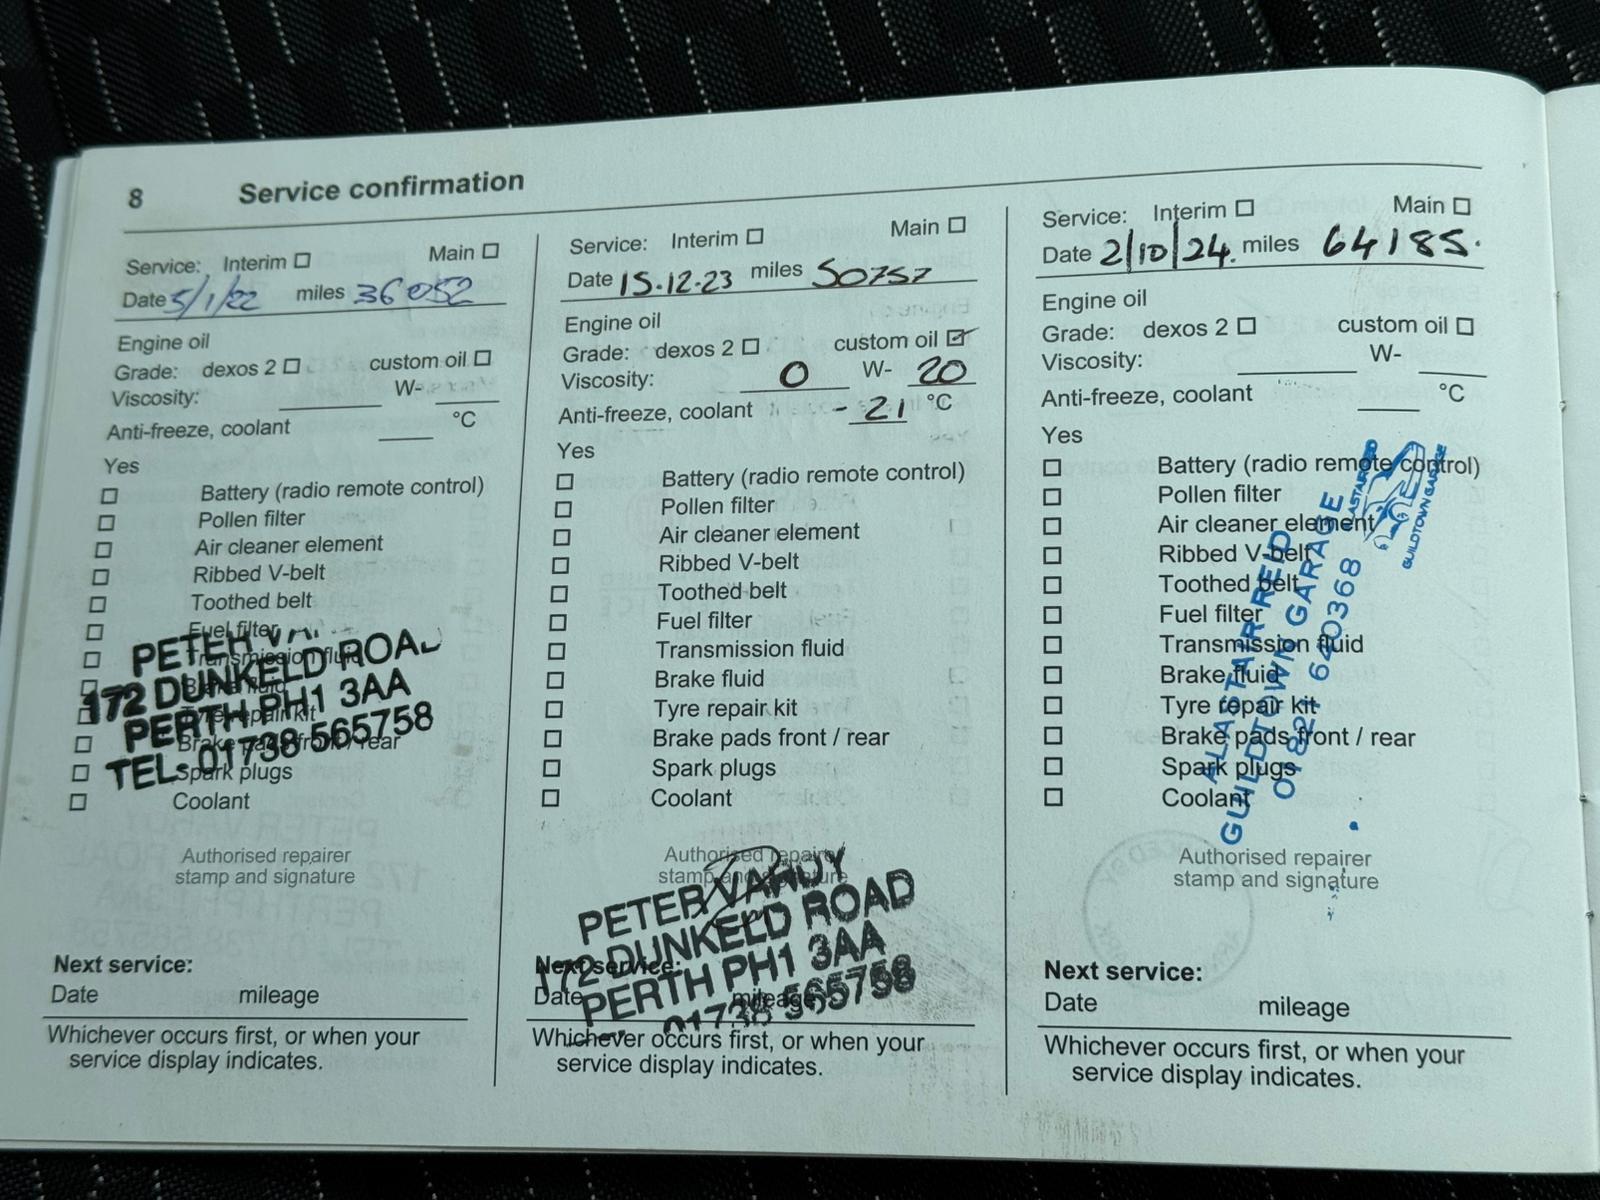 8 Service confirmation
Service: Interim Main
Date 5/1/22 miles 36052
Engine oil
Grade: dexos 2 custom oil
Viscosity: W-
Anti-freeze, coolant °C
Yes
Battery (radio remote control)
Pollen filter
Air cleaner element
Ribbed V-belt
Toothed belt
Fuel filter
Transmission fluid
Brake fluid
Tyre repair kit
Brake pads front / rear
Spark plugs
Coolant
PETER
172 DUNKELD ROAD
PERTH PH1 3AA
TEL: 01738 565758
Authorised repairer
stamp and signature
Next service:
Date mileage
Whichever occurs first, or when your
service display indicates.
Service: Interim Main
Date 15.12.23 miles 50757
Engine oil
Grade: dexos 2 custom oil
Viscosity: 0 W- 20
Anti-freeze, coolant -21 °C
Yes
Battery (radio remote control)
Pollen filter
Air cleaner element
Ribbed V-belt
Toothed belt
Fuel filter
Transmission fluid
Brake fluid
Tyre repair kit
Brake pads front / rear
Spark plugs
Coolant
Authorised repairer
stamp and signature
PETER VARDY
172 DUNKELD ROAD
PERTH PH1 3AA
01738 565758
Next service:
Date mileage
Whichever occurs first, or when your
service display indicates.
Service: Interim Main
Date 2/10/24. miles 64185.
Engine oil
Grade: dexos 2 custom oil
Viscosity: W-
Anti-freeze, coolant °C
Yes
Battery (radio remote control)
Pollen filter
Air cleaner element
Ribbed V-belt
Toothed belt
Fuel filter
Transmission fluid
Brake fluid
Tyre repair kit
Brake pads front / rear
Spark plugs
Coolant
ALASTAIR REID
GUILDTOWN GARAGE
01821 640368
GUILDTOWN GARAGE
Authorised repairer
stamp and signature
Next service:
Date mileage
Whichever occurs first, or when your
service display indicates.